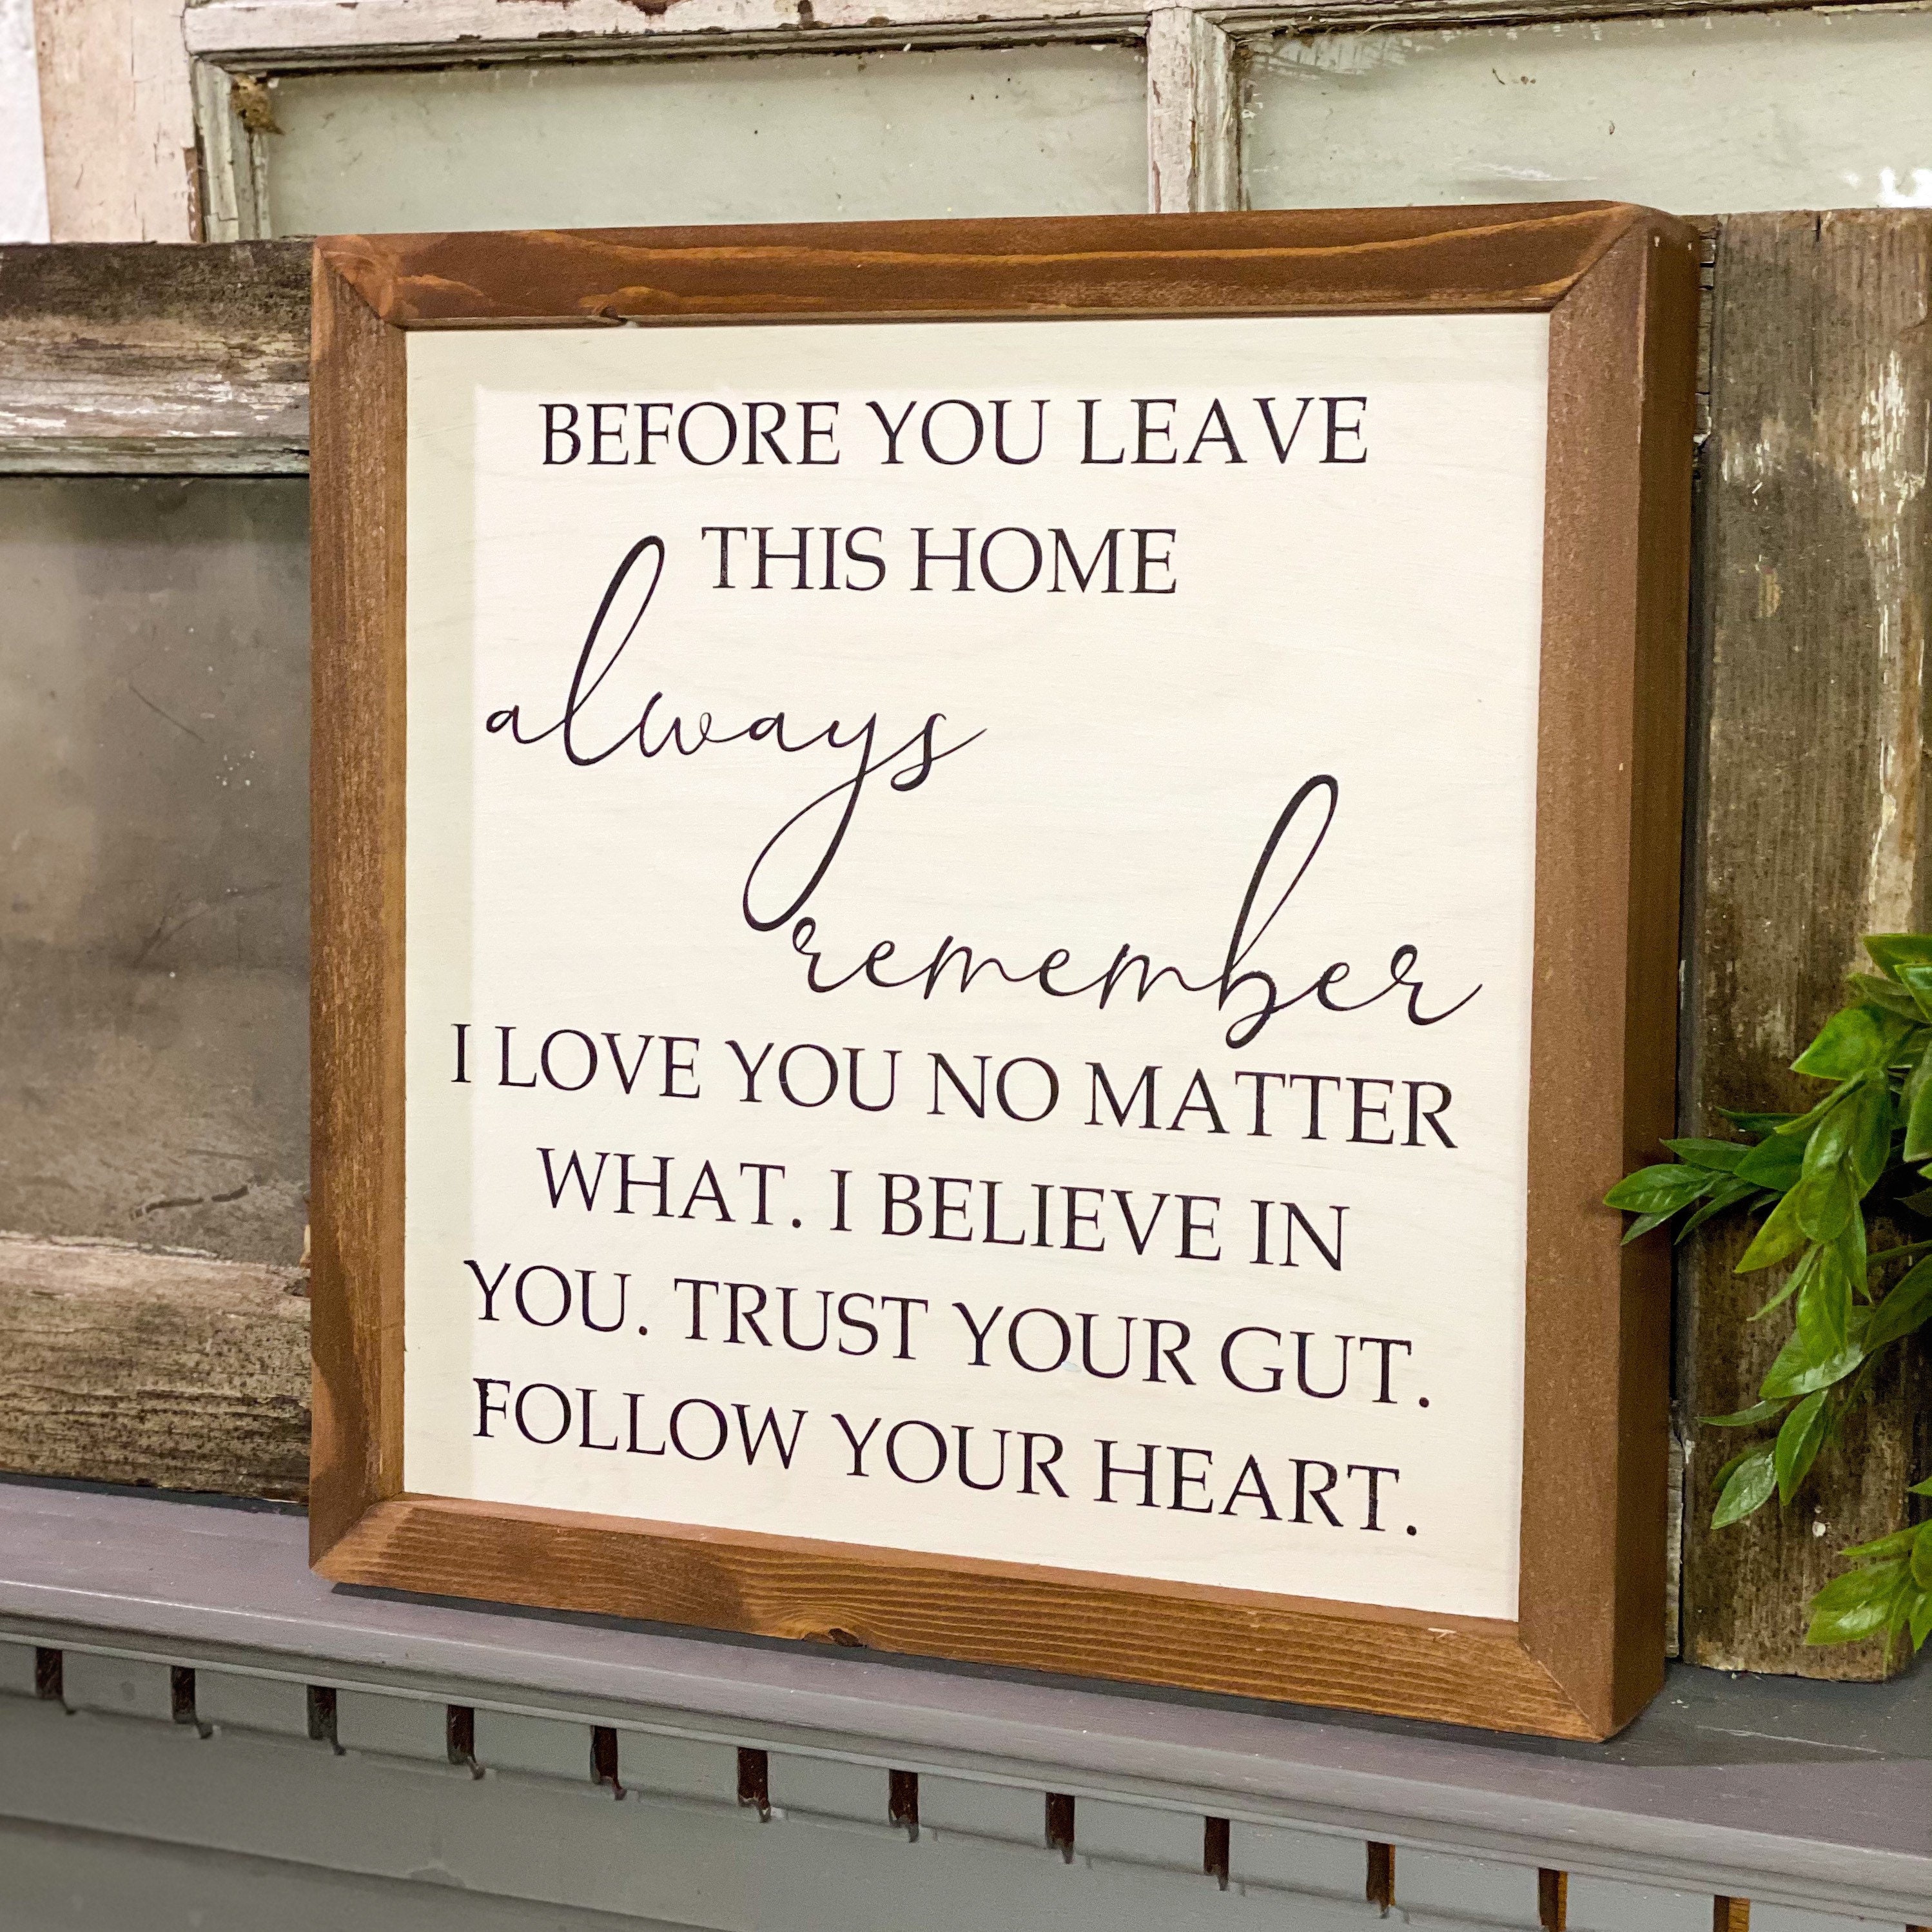 BEFORE YOU LEAVE
THIS HOME
always
remember
I LOVE YOU NO MATTER
WHAT. I BELIEVE IN
YOU. TRUST YOUR GUT.
FOLLOW YOUR HEART.